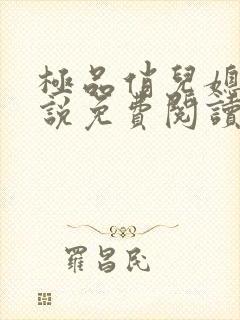 極品俏兒媳
說免費閱讀
羅昌民